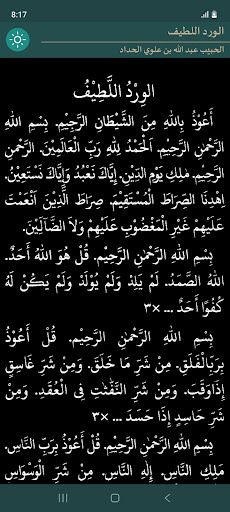 8:17
الورد اللطيف
الحبيب عبد الله بن علوي الحداد
الوِرْدُ اللَّطِيْفُ
أَعُوْذُ بِاللهِ مِنَ الشَّيْطَانِ الرَّجِيْمِ. بِسْمِ اللهِ
الرَّحْمٰنِ الرَّحِيْمِ. اَلْحَمْدُ لِلّٰهِ رَبِّ الْعَالَمِيْنَ. الرَّحْمٰنِ
الرَّحِيْمِ. مٰلِكِ يَوْمِ الدِّيْنِ. إِيَّاكَ نَعْبُدُ وَإِيَّاكَ نَسْتَعِيْنُ.
اِهْدِنَا الصِّرَاطَ الْمُسْتَقِيْمَ. صِرَاطَ الَّذِيْنَ أَنْعَمْتَ
عَلَيْهِمْ غَيْرِ الْمَغْضُوْبِ عَلَيْهِمْ وَلَا الضَّآلِّيْنَ.
بِسْمِ اللهِ الرَّحْمٰنِ الرَّحِيْمِ. قُلْ هُوَ اللهُ أَحَدٌ.
اَللهُ الصَّمَدُ. لَمْ يَلِدْ وَلَمْ يُوْلَدْ وَلَمْ يَكُنْ لَهُ
كُفُوًا أَحَدٌ ... ×٣
بِسْمِ اللهِ الرَّحْمٰنِ الرَّحِيْمِ. قُلْ أَعُوْذُ
بِرَبِّ الْفَلَقِ. مِنْ شَرِّ مَا خَلَقَ. وَمِنْ شَرِّ غَاسِقٍ
إِذَا وَقَبَ. وَمِنْ شَرِّ النَّفّٰثٰتِ فِي الْعُقَدِ. وَمِنْ
شَرِّ حَاسِدٍ إِذَا حَسَدَ ... ×٣
بِسْمِ اللهِ الرَّحْمٰنِ الرَّحِيْمِ. قُلْ أَعُوْذُ بِرَبِّ النَّاسِ.
مَلِكِ النَّاسِ. إِلٰهِ النَّاسِ. مِنْ شَرِّ الْوَسْوَاسِ